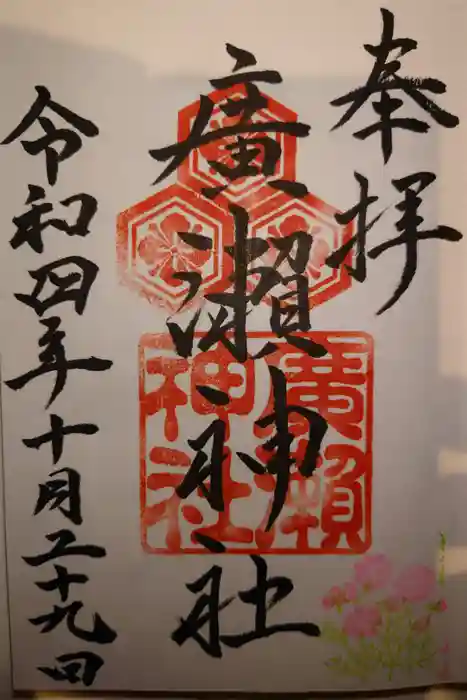 奉拝
廣瀬神社
廣瀬神社
令和四年十月二十九日